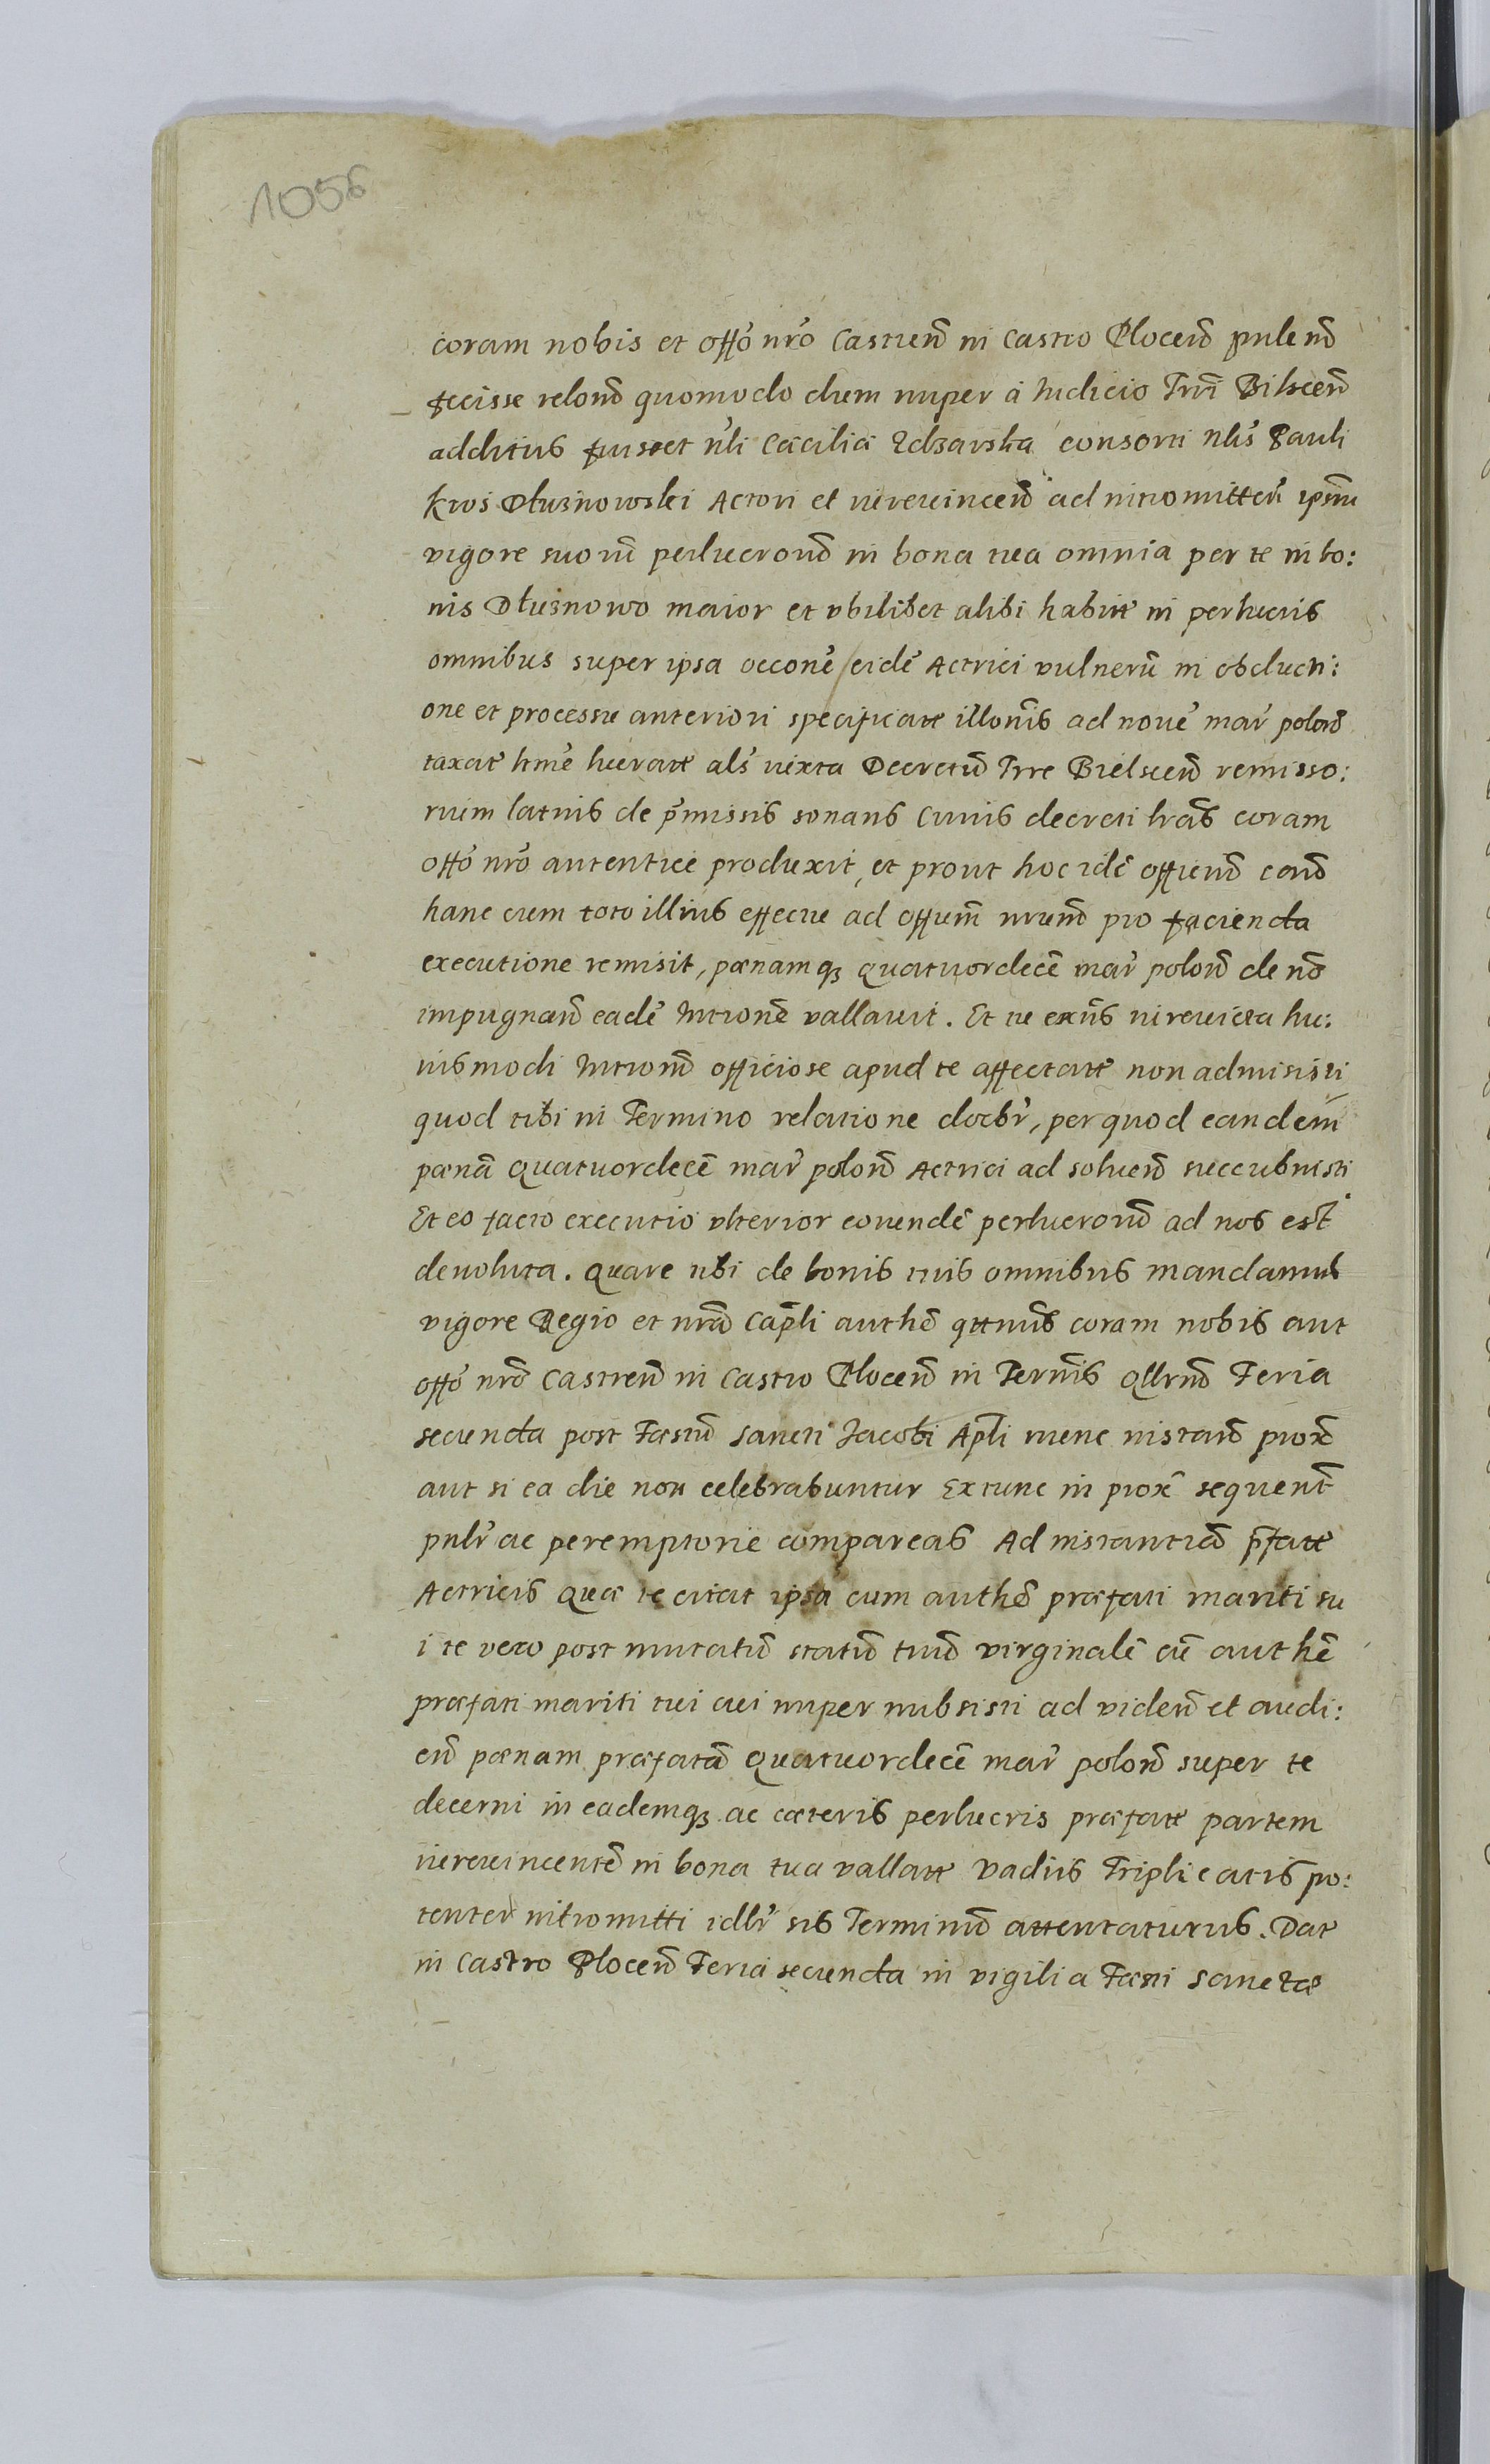 1056
coram nobis et offo nro Castren in Castro Plocen pnlend
fecisse relond quomodo dum nuper a Iudicio Trri Bilscen
additus fuisset nli Cæcilia Zdzarska consorti nlis Pauli
Kros Dłuznowski Actori et iurevincen ad intromitten ipsm
vigore suoru perlucrond in bona tua omnia per te in bo:
nis Dłuznowo maior et vbilibet alibi habitt in perlucris
omnibus super ipsa occone eide Actrici vulneru in obducti:
one et processu anteriori specificatt illonis ad nove mar polond
taxat hme lucratt als iuxta Decretu Trre Bielscen remisso:
rium latius de pmissis sonans Cuius decreti lras coram
offo nro autentice produxit, et prout hoc ide offiund cand
hanc cum toto illius effectu ad offium nrum pro facienda
executione remisit, pænamq quatuordece mar polond de no
impugnand eade Introne vallavit. Et tu exns iurevicta hu:
iusmodi Introm officiose apud te affectatt non admisisti
quod tibi in Termino relatione docebr, per quod eandem
pæna quatuordece mar polond Actrici ad solvend succubuisti
Et eo facto executio vlterior eorunde perlucrond ad nos est
devoluta. Quare tibi de bonis tuis omnibus mandamus
vigore Regio et nra Capli authe qttnus coram nobis aut
offo nro Castren in Castro Plocen in Termis Qllrnd Feria
secunda post Fæstu Sancti Jacobi Apli nunc instand prox
aut si ea die non celebrabuntur Extunc in prox sequent
pnlr ac peremptorie compareas Ad instantia pfatt
Actricis Quæ te citat ipsa cum authe præfati mariti su
i te vero post mutatu statu tuu virginale cu authe
præfati mariti tui cui nuper nubsisti ad viden et audi:
en pænam præfata Quatuordece mar polond super te
decerni in eademq ac cæteris perlucris præfatt partem
iurevincente in bona tua vallatt Vadiis Triplicatis po:
tenter intromitti idlr sis Terminu attentaturus. Dat
in Castro Plocen Feria secunda in vigilia Fæsti Sanctæ